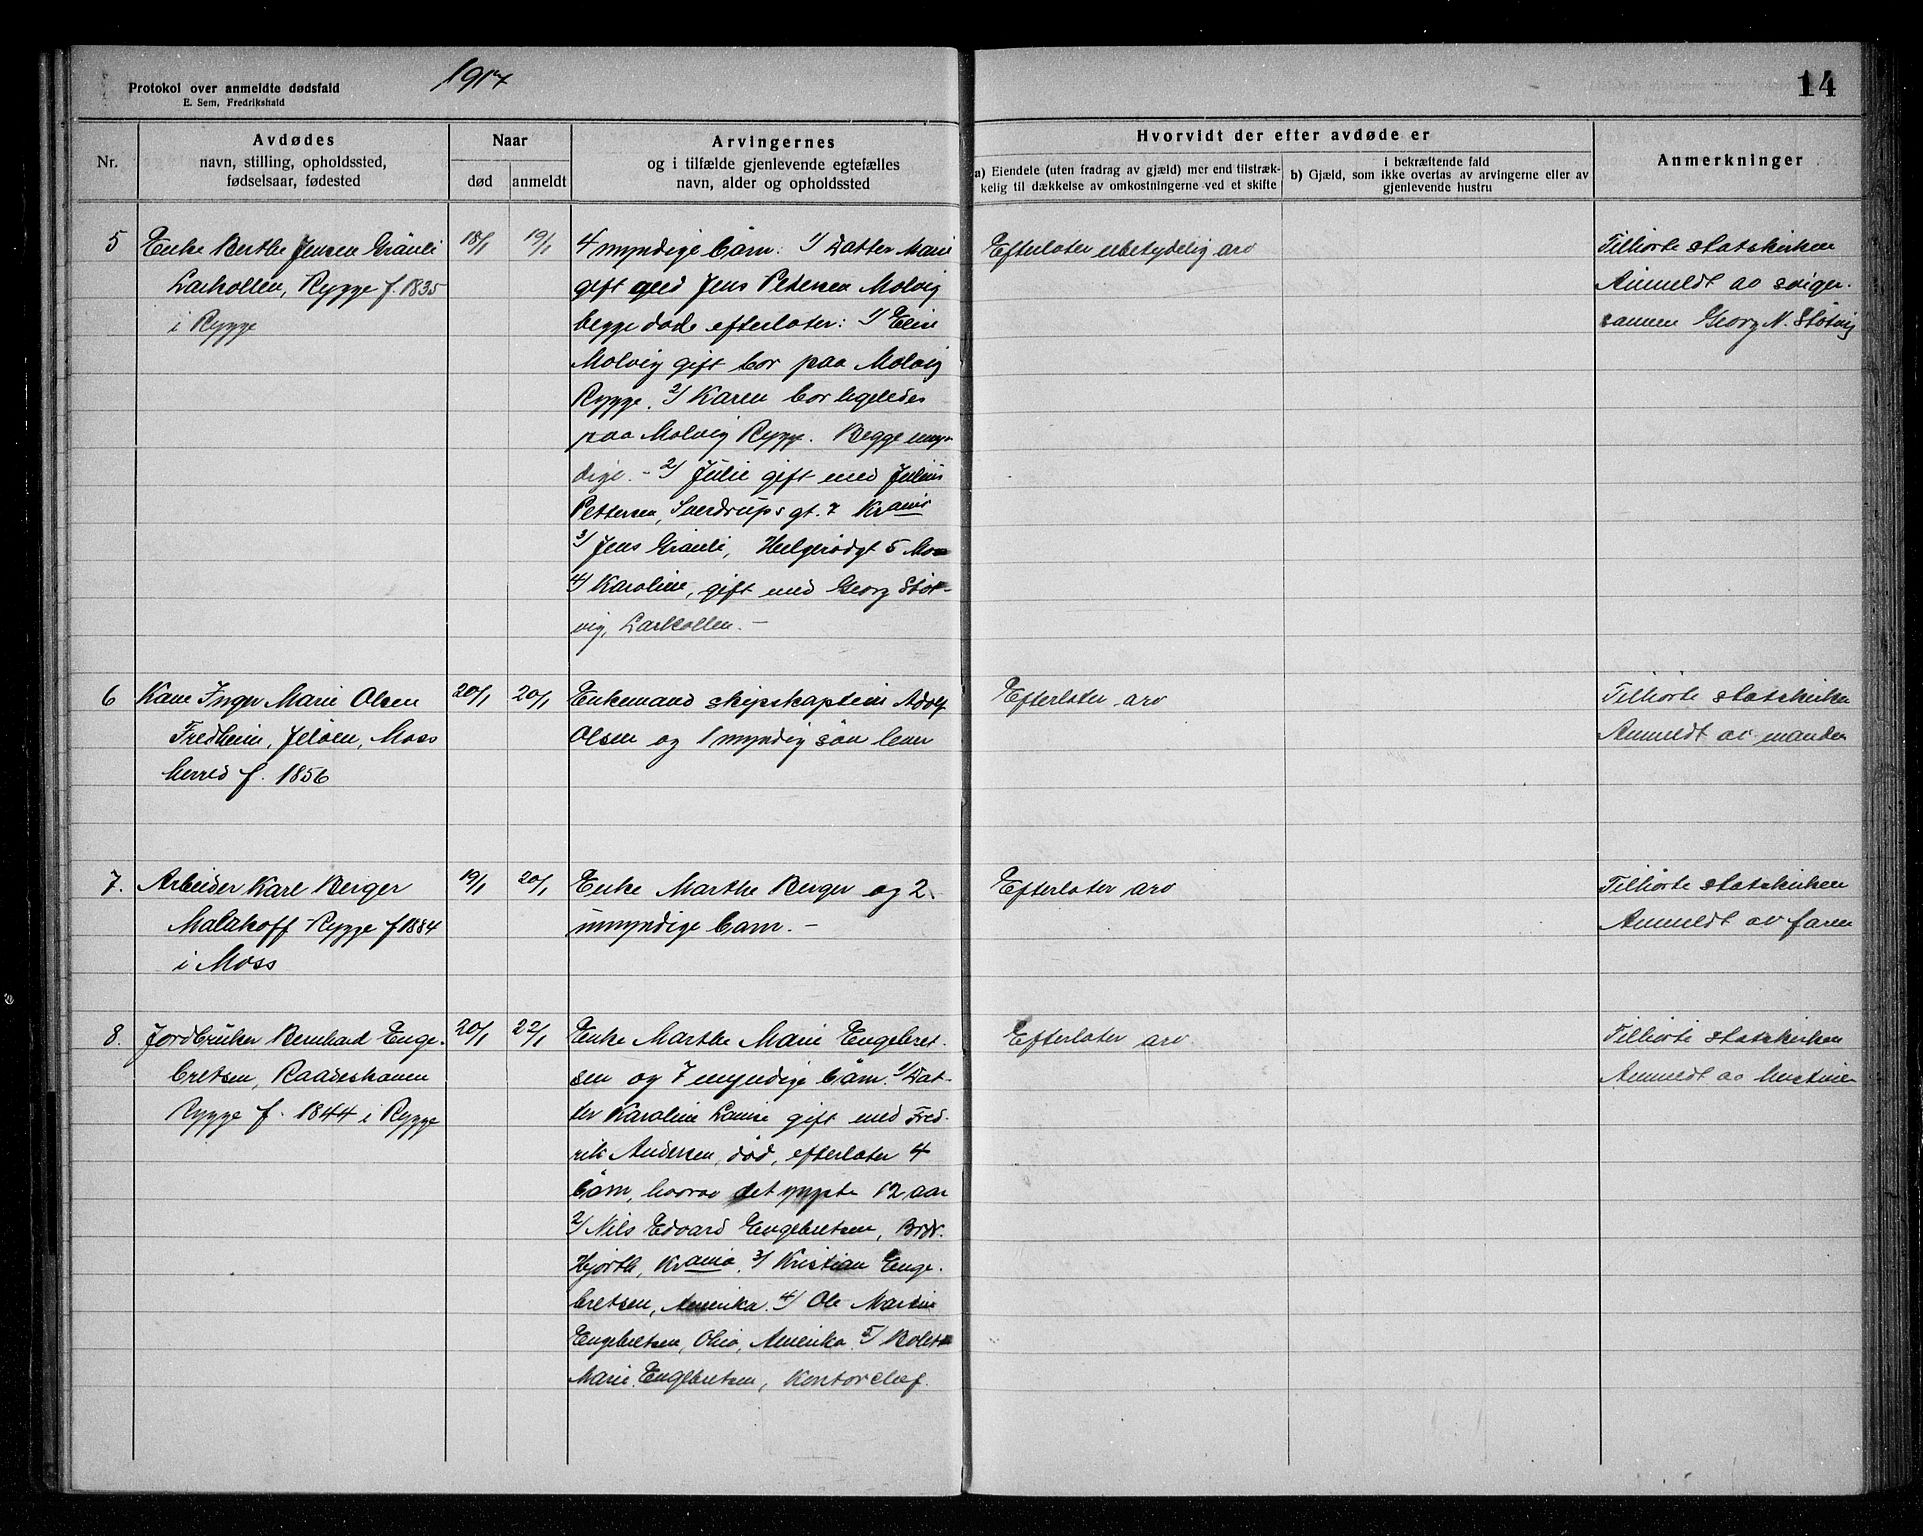 Protokol over anmeldte dødsfald
E. Sem, Fredrikshald
1917
14
Nr.
Avdødes
navn, stilling, opholdssted,
fødselsaar, fødested
Naar
død
anmeldt
Arvingernes
og i tilfælde gjenlevende egtefælles
navn, alder og opholdssted
Hvorvidt der efter avdøde er
a) Eiendele (uten fradrag av gjæld) mer end tilstræk-
kelig til dækkelse av omkostningerne ved et skifte
i bekræftende fald
b) Gjæld, som ikke overtas av arvingerne eller av
gjenlevende hustru
Anmerkninger
5
Enke Berthe Jensen Grönli
Larkollen, Rygge f. 1835
i Rygge
18/1
19/1
4 myndige børn: 1/ Datter Marie
gift med Jens Petersen Molvig
begge døde efterlater: 1/ Elise
Molvig gift bor paa Molvig
Rygge. 2/ Karen bor ligeledes
paa Molvig Rygge. Begge myn-
dige. - 2/ Julie gift med Julius
Pettersen, Sverdrups gt. 7 Krania
3/ Jens Grönli, Helgerødgt 5 Moss
4/ Karoline, gift med Georg Støt-
vig, Larkollen. -
Efterlater ubetydelig arv
Tilhørte statskirken
Anmeldt av sviger-
sønnen Georg N. Støtvig
6
Kone Inger Marie Olsen
Fredheim, Jeløen, Moss
herred f. 1856
20/1
20/1
Enkemand skipskaptein Adolf
Olsen og 1 myndig søn lever
Efterlater arv
Tilhørte statskirken
Anmeldt av manden
7.
Arbeider Karl Berger
Malakoff Rygge f 1884
i Moss
19/1
20/1
Enke Marthe Berger og 2
umyndige børn. -
Efterlater arv
Tilhørte statskirken
Anmeldt av faren
8.
Jordbruker Bernhard Enge-
bretsen, Raadeskauen
Rygge f. 1844 i Rygge
20/1
22/1
Enke Marthe Marie Engebret-
sen og 7 myndige børn. 1/ Dat-
ter Karoline Louise gift med Fred-
rik Andersen, død, efterlater 4
børn, hvorav det yngste 12 aar
2/ Nils Edvard Engebretsen, Brdr.
Hjorth, Krania. 3/ Kristian Enge-
bretsen, Amerika. 4/ Ole Martin
Engebretsen, Ohio, Amerika. 5/ Bolette
Marie Engebretsen, Kontorchef.
Efterlater arv.
Tilhørte statskirken
Anmeldt av hustruen